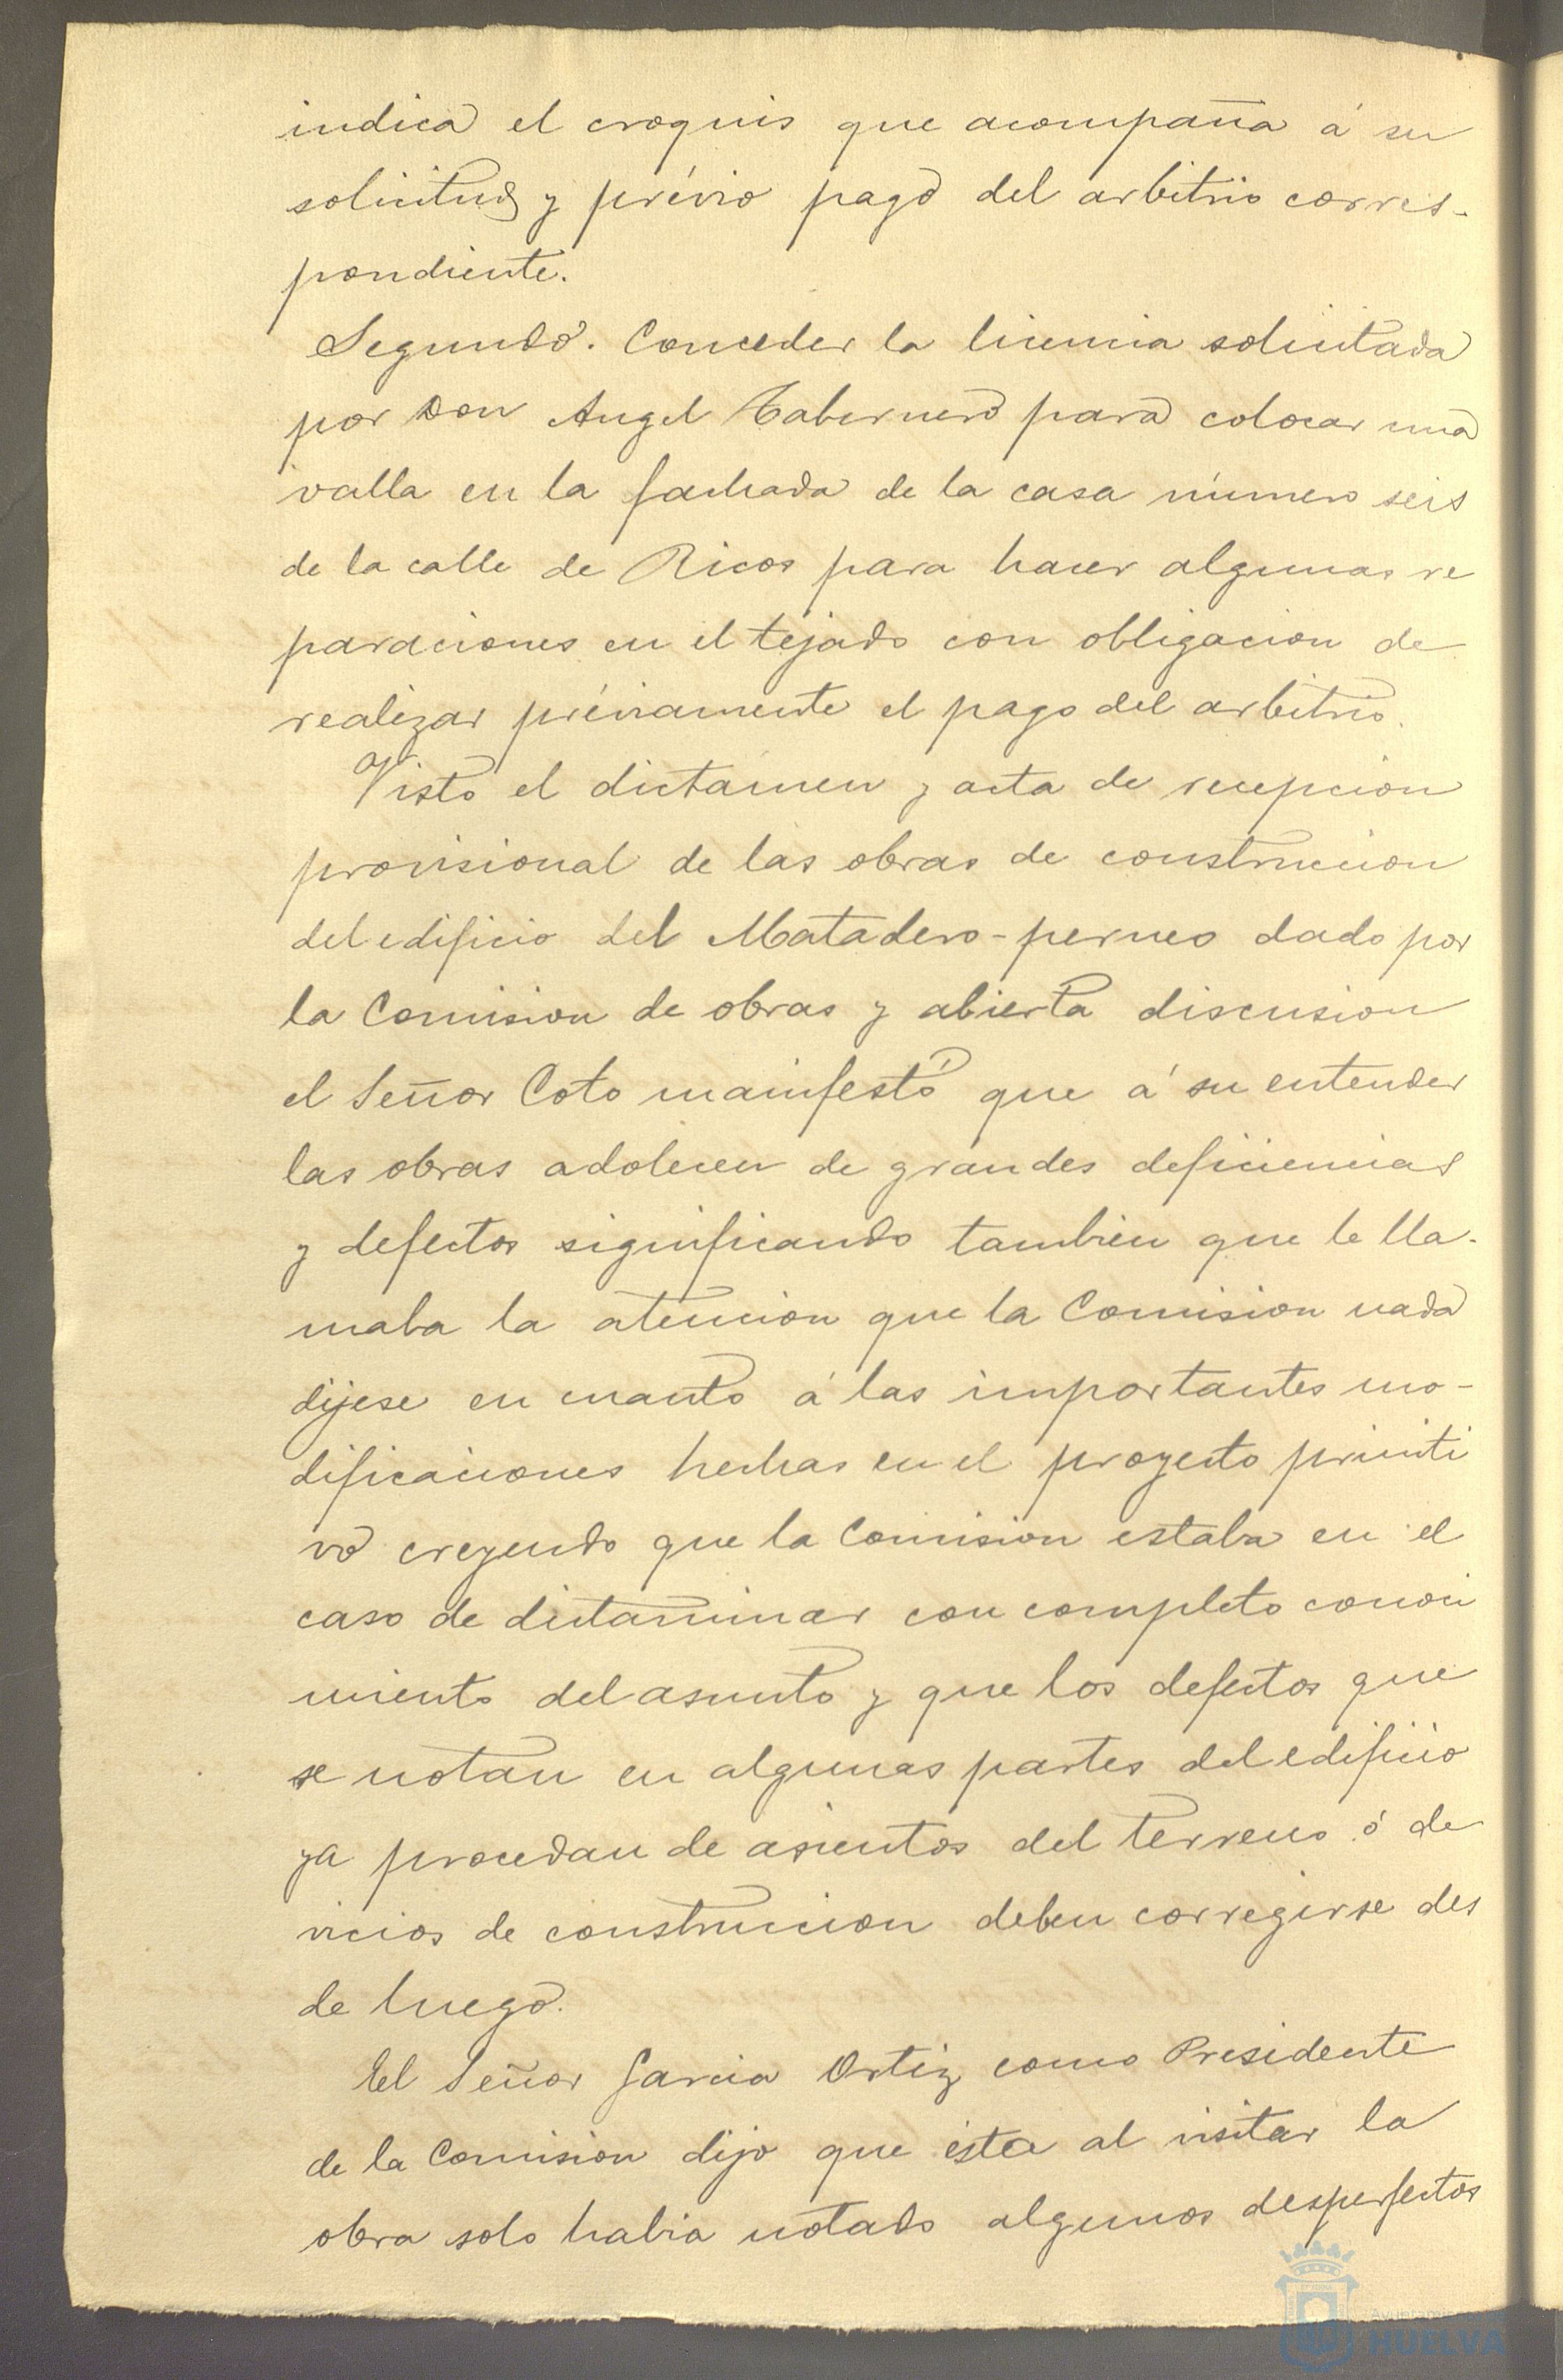 indica el croquis que acompaña á su
solicitud y prévio pago del arbitrio corres-
pondiente.
Segundo. Conceder la licencia solicitada
por Don Angel Tabernero para colocar una
valla en la fachada de la casa número seis
de la calle de Ricos para hacer algunas re
paraciones en el tejado con obligacion de
realizar préviamente el pago del arbitrio.
Visto el dictámen y acta de recepcion
provisional de las obras de construccion
del edificio del Matadero-perneo dado por
la Comision de obras y abierta discusion
el Señor Coto manifestó que á su entender
las obras adolecen de grandes deficiencias
y defectos significando tambien que le lla-
maba la atencion que la Comision nada
dijese en cuanto á las importantes mo-
dificaciones hechas en el proyecto primiti
vo creyendo que la Comision estaba en el
caso de dictaminar con completo conoci
miento del asunto y que los defectos que
se notan en algunas partes del edificio
ya procedan de asientos del terreno ó de
vicios de construccion deben corregirse des
de luego.
El Señor Garcia Ortiz como Presidente
de la Comision dijo que ésta al visitar la
obra solo habia notado algunos desperfectos
HUELVA